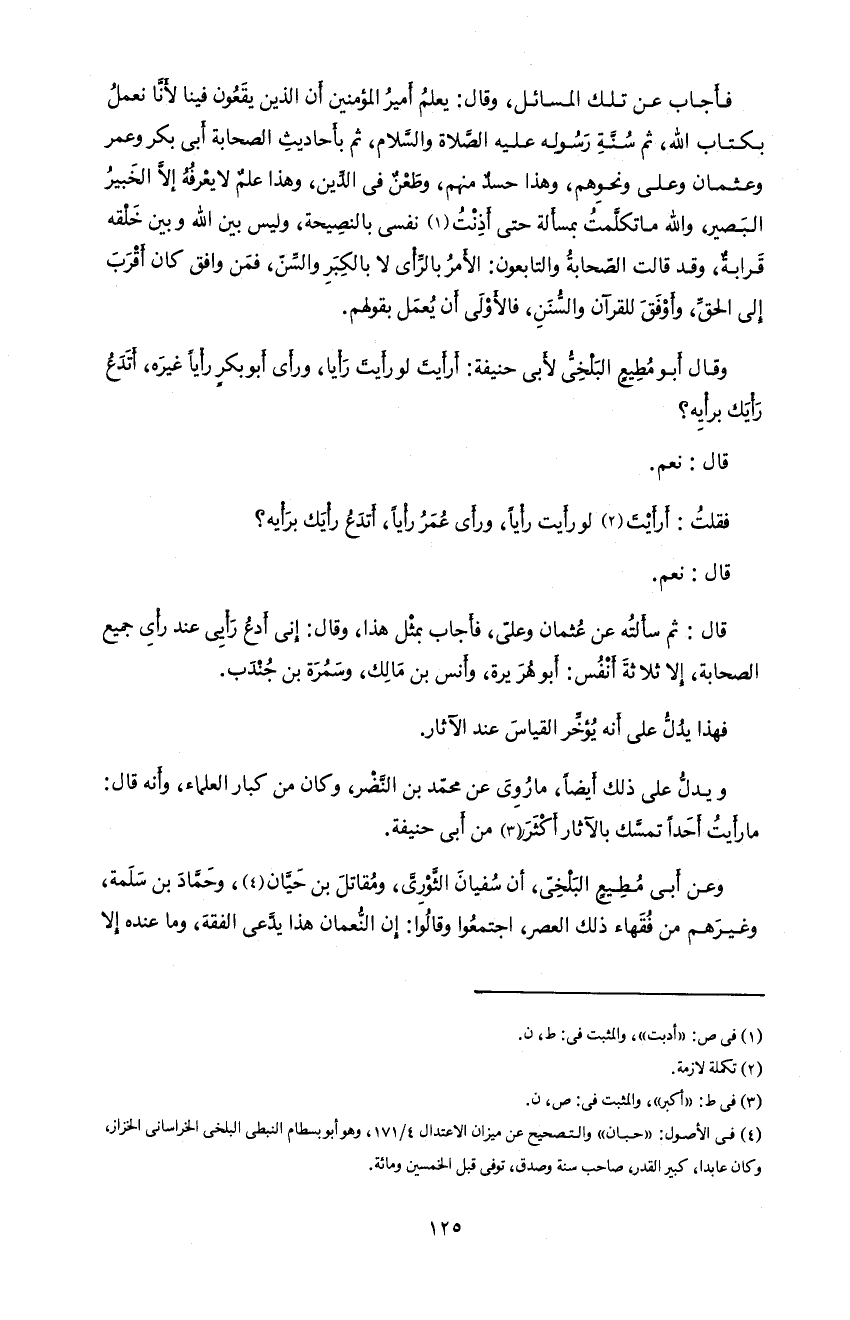 فـأجـاب عـن تـلـك المـسـائـل، وقال: يعلمُ أميرُ المؤمنين أن الذين يقَعُون فينا لأنَّا نعملُ
بـكـتـاب الله، ثم سُـنَّـةِ رَسُـولـه عـلـيـه الصَّلاة والسَّلام، ثم بأحاديثِ الصحابة أبى بكر وعمر
وعـثـمـان وعـلـى ونحـوِهم، وهذا حسدٌ منهم، وطَعْنٌ فى الدِّين، وهذا علمٌ لا يعْرفُهُ إلاَّ الخَبيرُ
الـبَـصير، والله مـاتكلَّمتُ بمسألة حتى أذِنْتُ (١) نفسى بالنصِيحة، وليس بين الله وبين خَلْقه
قَـرابـةٌ، وقـد قالت الصّحابةُ والتابعون: الأمرُ بالرَّأى لا بالكِبَرِ والسِّنّ، فمَن وافق كان أقْرَبَ
إلى الحقِّ، وأوْفَقَ للقرآن والسُّنَنِ، فالأَوْلَى أن يُعمَل بقولهم.
وقـال أبـو مُطِيعٍ البَلْخِىُّ لأبى حنيفة: أرأيتَ لو رأيتَ رَأيا، ورأى أبو بكرٍ رأياً غيرَه، أتَدَعُ
رَأيَك برأيِه؟
قال : نعم.
فقلتُ : أرأيْتَ (٢) لو رأيت رأياً، ورأى عُمَرُ رأياً، أتدَعُ رأيَك برَأيه؟
قال : نعم.
قال : ثم سألتُه عن عُثمان وعلىّ، فأجاب بمثْل هذا، وقال: إنى أدعُ رَأيِى عند رأىِ جميع
الصحابة، إلا ثلاثةَ أنْفُس: أبو هُرَيرة، وأنس بن مَالِك، وسَمُرَة بن جُنْدَب.
فهذا يدُلُّ على أنه يُؤخِّر القياسَ عند الآثار.
ويـدلُّ على ذلك أيضاً، مارُوِىَ عن محمّد بن النَّضْر، وكان من كبار العلماء، وأنه قال:
مارأيتُ أحَداً تمسَّك بالآثار أكْثَرَ (٣) من أبى حنيفة.
وعـن أبـى مُـطِـيـعٍ البَلْخِىّ، أن سُفيانَ الثَّوْرِىَّ، ومُقاتلَ بن حَيَّان (٤)، وحَمَّادَ بن سَلَمة،
وغـيـرَهـم من فُقَهاء ذلك العصر، اجتمعُوا وقالُوا: إن النُّعمان هذا يدَّعى الفقهَ، وما عنده إلا
(١) فى ص: «أدبت»، والمثبت فى: ط، ن.
(٢) تكملة لازمة.
(٣) فى ط: «أكبر»، والمثبت فى: ص، ن.
(٤) فـى الأصـول: «حـبـان» والتـصحيح عن ميزان الاعتدال ١٧١/٤، وهو أبو بسطام النبطى البلخى الخراسانى الخزاز،
وكان عابدا، كبير القدر، صاحب سنة وصدق، توفى قبل الخمسين ومائة.
١٢٥